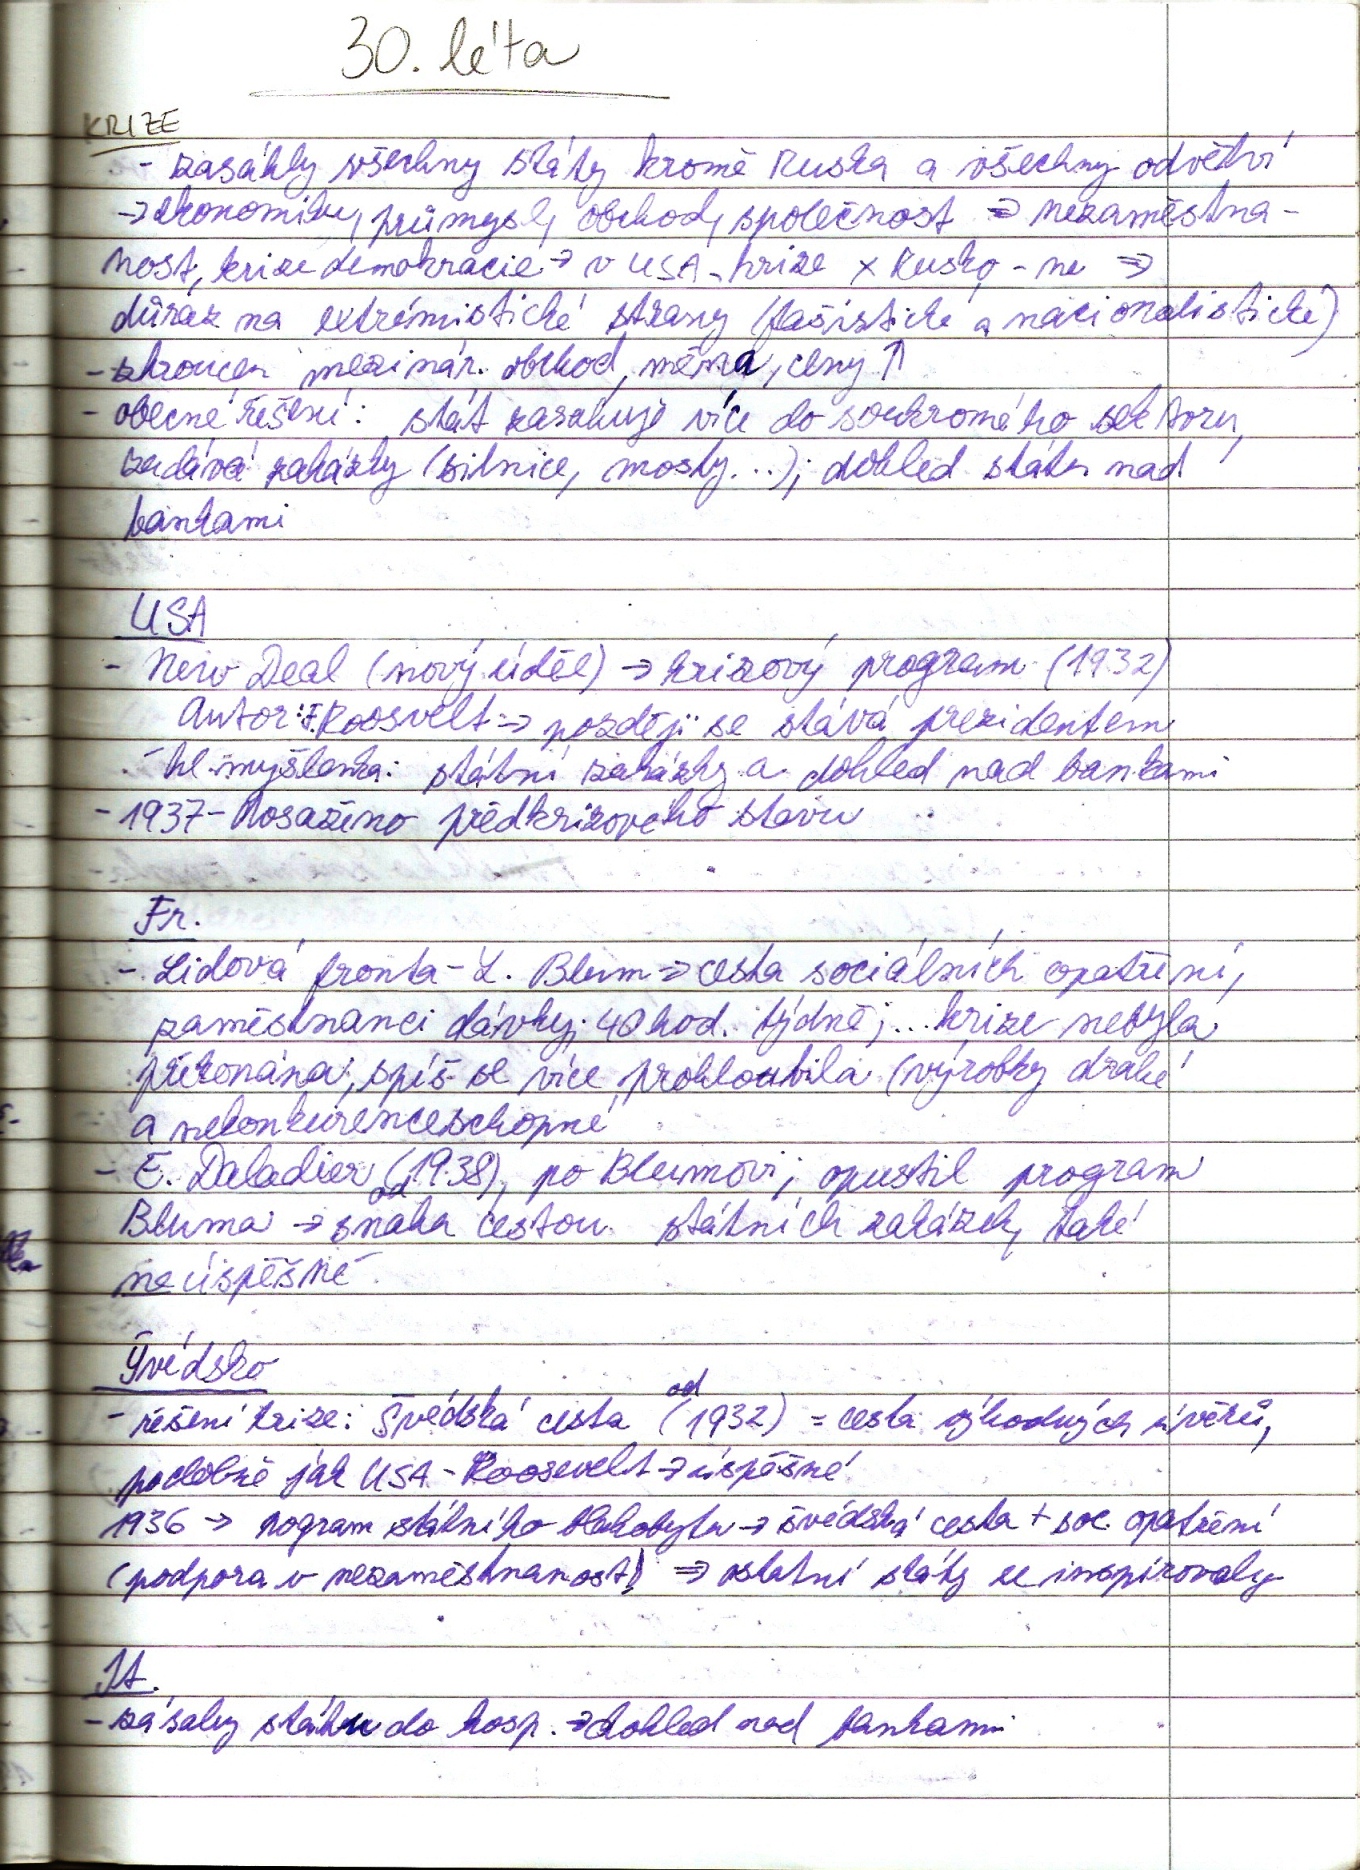 30. léta
KRIZE
- zasáhly všechny státy kromě Ruska a všechny odvětví
→ ekonomiku, průmysl, obchod, společnost ⇒ nezaměstna-
nost, krize demokracie → v USA - krize x Rusko - ne ⇒
důraz na extrémistické strany (fašistické a nacionalistické)
- zhroucen mezinár. obchod, měna, ceny ↑
- obecné řešení: stát zasahuje více do soukromého sektoru,
zadává zakázky (silnice, mosty...); dohled státu nad
bankami
USA
- New Deal (nový úděl) → krizový program (1932)
Autor: F. Roosvelt → později se stává prezidentem
- hl. myšlenka: státní zakázky a dohled nad bankami
- 1937 - dosaženo předkrizového stavu
Fr.
- Lidová fronta - L. Blum ⇒ cesta sociálních opatření,
zaměstnanci dávky; 40 hod. týdně; ... krize nebyla
překonána, spíš se více prohloubila (výrobky drahé
a nekonkurenceschopné
- E. Daladier (od 1938), po Blumovi; opustil program
Bluma → snaha cestou státních zakázek, také
neúspěšné
Švédsko
- řešení krize: Švédská cesta (od 1932) = cesta výhodných úvěrů,
podobně jak USA - Roosevelt → úspěšné
1936 → program státního blahobytu → švédská cesta + soc. opatření
(podpora v nezaměstnanosti) ⇒ ostatní státy se inspirovaly
It.
- zásahy státu do hosp. → dohled nad bankami